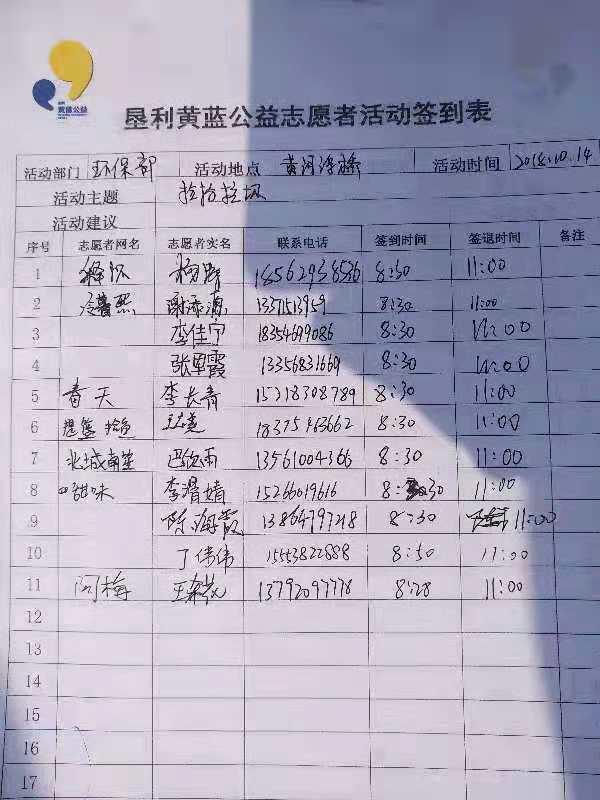 黄蓝公益
垦利黄蓝公益志愿者活动签到表
活动部门 环保部 活动地点 黄河浮桥 活动时间 2018.10.14
活动主题 捡拾垃圾
活动建议
序号 志愿者网名 志愿者实名 联系电话 签到时间 签退时间 备注
1 18562938526 8:30 11:00
2 13371513959 8:30 11:00
3 李佳宁 18354699086 8:30 11:00
4 张军霞 13356831669 8:30 11:00
5 春天 李长青 15218308789 8:30 11:00
6 18375463662 8:30 11:00
7 北城南笙 巴欣雨 13561004366 8:30 11:00
8 甜味 李滑婧 15266019616 8:30 11:00
9 陈海霞 13864797248 8:30 11:00
10 丁伟伟 15553822888 8:50 11:00
11 阿梅 13792097778 8:28 11:00
12
13
14
15
16
17